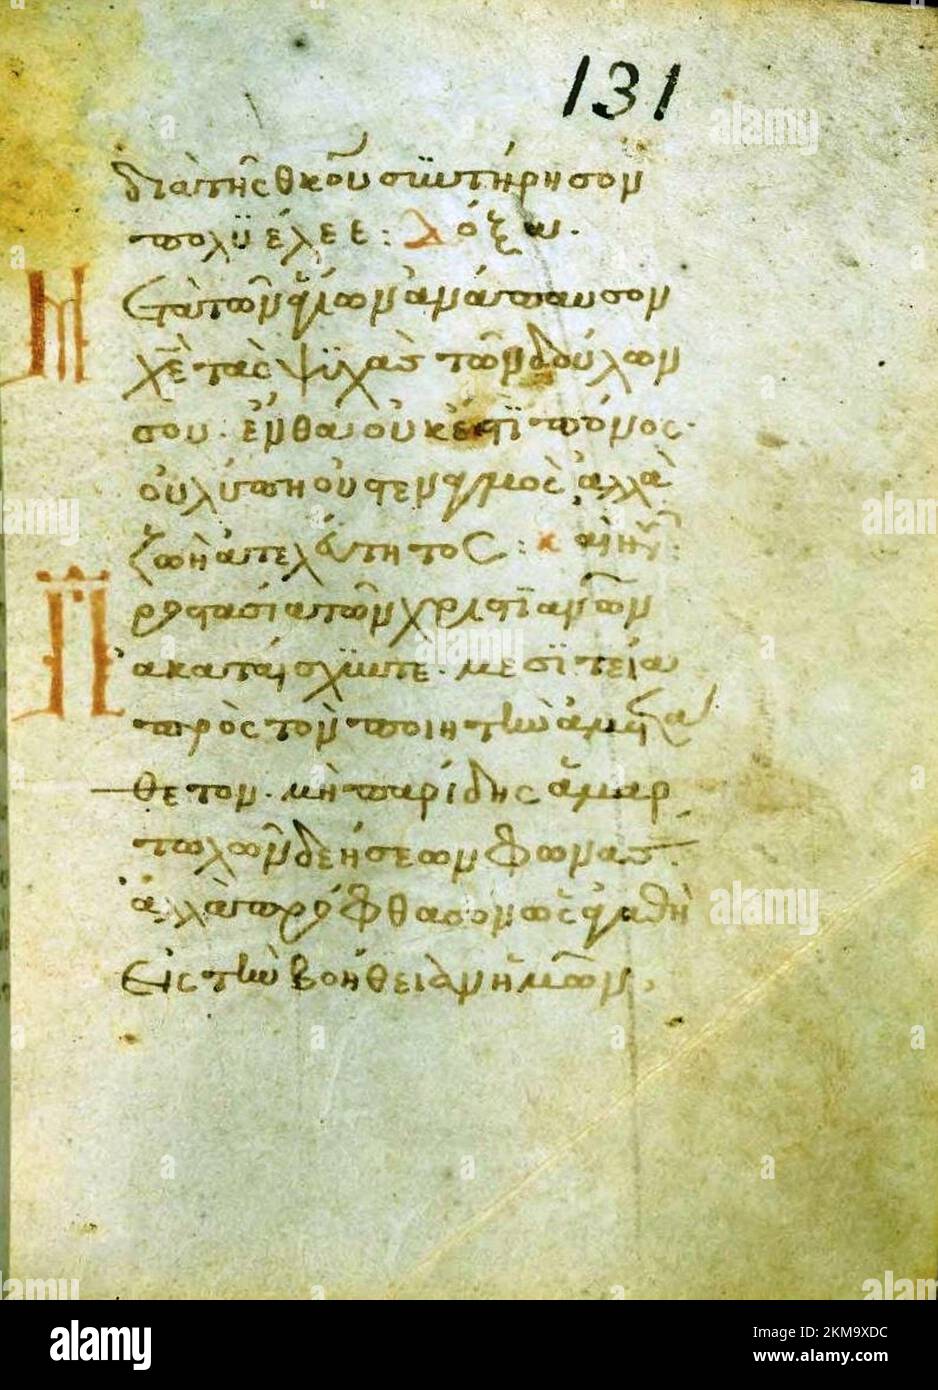 131
διὰ τῆς θκου σϊωτήρησον
πολϋέλεε : Δόξω.
Μετὰ τῶν ἁγίων ἀνάπαυσον
χε τὰς ψϊχὰσ τῶν δούλων
σου. ἔνθα οὐκ ἔστϊ πόνος.
οὐ λύπη οὐ στεναγμὸς ἀλλὰ
ζωὴ ἀτελεύτητος : καὶ νῦν :
Προστασία τῶν χριστϊανῶν
ἀκαταίσχϊντε. μεσϊτεία
πρὸς τὸν ποιητὴν ἀμετα
θετον. μὴ παρίδης ἁμαρ
τωλῶν δεήσεων φωνάσ.
ἀλλὰ πρόφθασον ὡς ἀγαθὴ
εἰς τὴν βοήθειαν ἡμῶν.
alamy
Image ID: 2KM9XDC
www.alamy.com